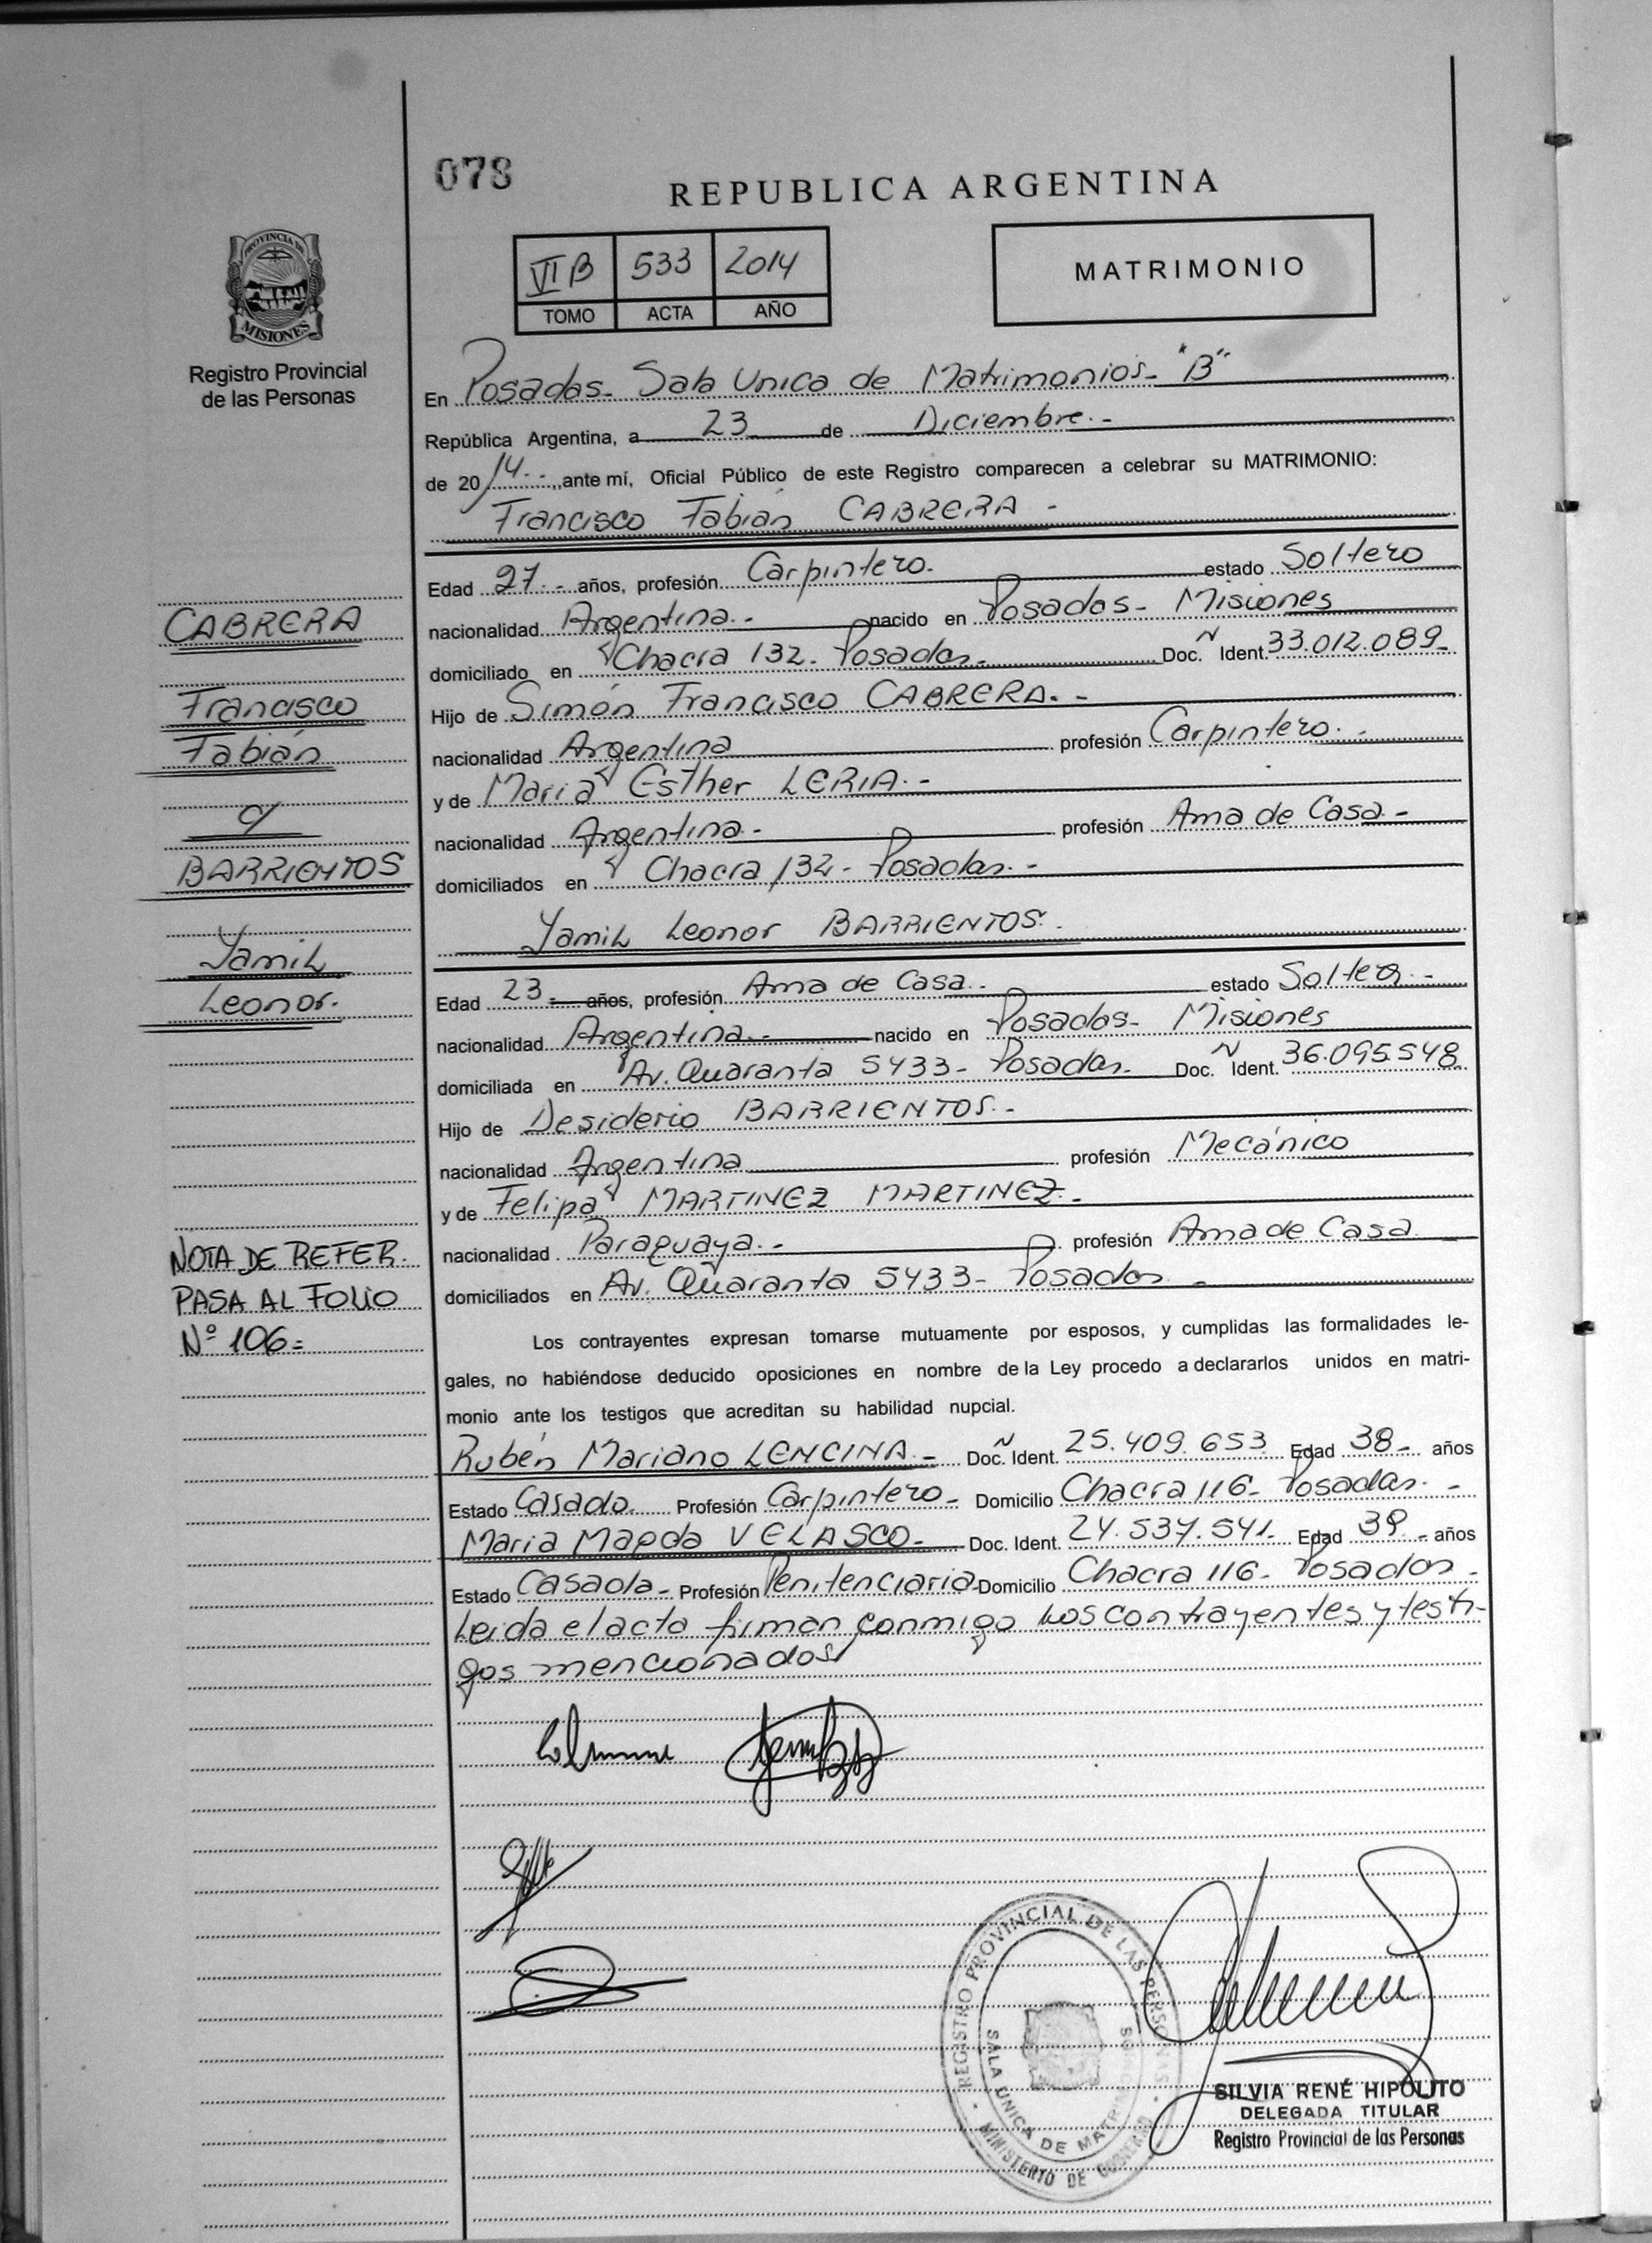 078
REPUBLICA ARGENTINA
PROVINCIA DE
MISIONES
Registro Provincial
de las Personas
VI B 533 2014
TOMO ACTA AÑO
MATRIMONIO
En Posadas - Sala Unica de Matrimonios - "B"
República Argentina, a 23 de Diciembre.-
de 2014.- ,ante mí, Oficial Público de este Registro comparecen a celebrar su MATRIMONIO:
Francisco Fabián CABRERA -
Edad 27.- años, profesión Carpintero.- estado Soltero
nacionalidad Argentina.- nacido en Posadas - Misiones
domiciliado en Chacra 132 - Posadas.- Doc. N Ident. 33.012.089-
Hijo de Simón Francisco CABRERA.-
nacionalidad Argentina profesión Carpintero.-
y de Maria Esther LERIA.-
nacionalidad Argentina.- profesión Ama de Casa.-
domiciliados en Chacra 132 - Posadas.-
Yamil Leonor BARRIENTOS.-
Edad 23 años, profesión Ama de Casa.- estado Soltera.-
nacionalidad Argentina.- nacido en Posadas - Misiones
domiciliada en Av. Quaranta 5433 - Posadas.- Doc. N Ident. 36.095.548
Hijo de Desiderio BARRIENTOS.-
nacionalidad Argentina profesión Mecánico
y de Felipa MARTINEZ MARTINEZ.-
nacionalidad Paraguaya.- profesión Ama de Casa
domiciliados en Av. Quaranta 5433 - Posadas -
Los contrayentes expresan tomarse mutuamente por esposos, y cumplidas las formalidades le-
gales, no habiéndose deducido oposiciones en nombre de la Ley procedo a declararlos unidos en matri-
monio ante los testigos que acreditan su habilidad nupcial.
Rubén Mariano LENCINA.- Doc. N Ident. 25.409.653 Edad 38- años
Estado Casado. Profesión Carpintero- Domicilio Chacra 116 - Posadas.-
Maria Magda VELASCO- Doc. Ident. 24.537.541- Edad 39- años
Estado Casada- Profesión Penitenciaria- Domicilio Chacra 116 - Posadas -
Leida el acta firman conmigo los contrayentes y testi-
gos mencionados
CABRERA
Francisco
Fabián
y
BARRIENTOS
Yamil
Leonor.
NOTA DE REFER.
PASA AL FOLIO
Nº 106=
REGISTRO PROVINCIAL DE LAS PERSONAS
MINISTERIO DE GOBIERNO
SALA UNICA DE
SILVIA RENÉ HIPÓLITO
DELEGADA TITULAR
Registro Provincial de las Personas